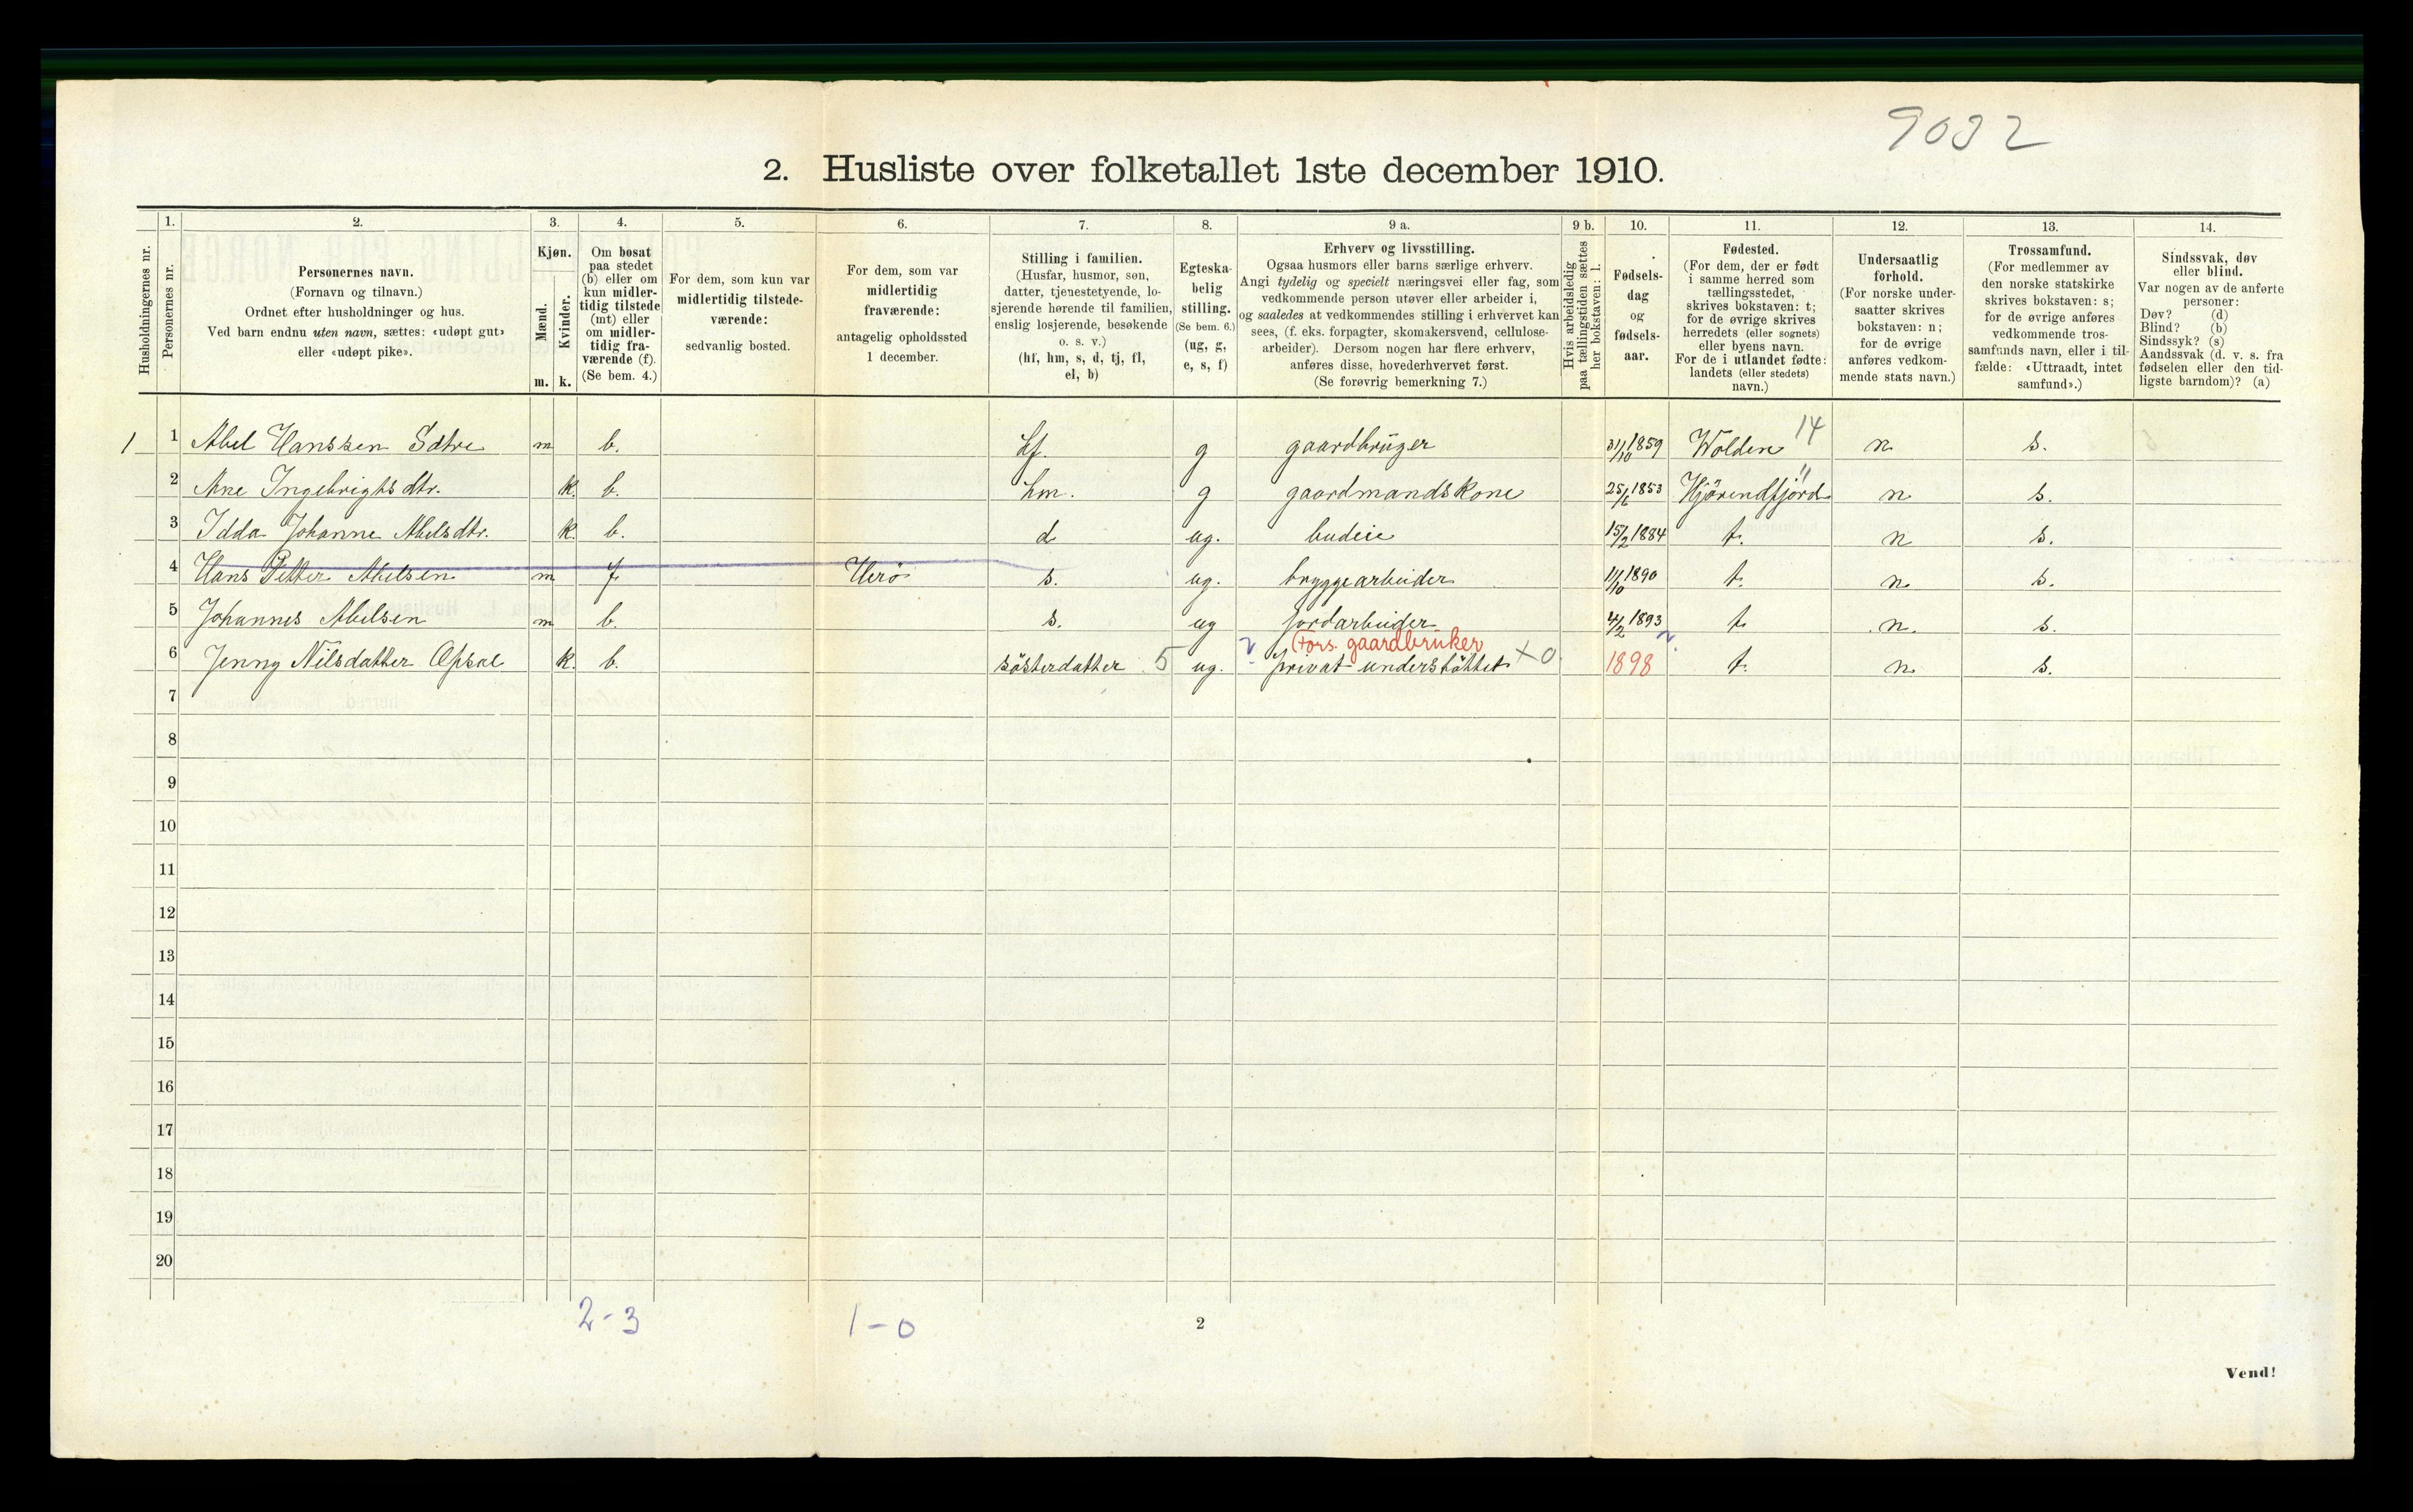 9032
2. Husliste over folketallet 1ste december 1910.
Husholdningernes nr.
1.
Personernes nr.
2.
Personernes navn.
(Fornavn og tilnavn.)
Ordnet efter husholdninger og hus.
Ved barn endnu uten navn, sættes: «udøpt gut»
eller «udøpt pike».
3.
Kjøn.
Mænd.
Kvinder.
m. k.
4.
Om bosat
paa stedet
(b) eller om
kun midler-
tidig tilstede
(mt) eller
om midler-
tidig fra-
værende (f).
(Se bem. 4.)
5.
For dem, som kun var
midlertidig tilstede-
værende:
sedvanlig bosted.
6.
For dem, som var
midlertidig
fraværende:
antagelig opholdssted
1 december.
7.
Stilling i familien.
(Husfar, husmor, søn,
datter, tjenestetyende, lo-
sjerende hørende til familien,
enslig losjerende, besøkende
o. s. v.)
(hf, hm, s, d, tj, fl,
el, b)
8.
Egteska-
belig
stilling.
(Se bem. 6.)
(ug, g,
e, s, f)
9 a.
Erhverv og livsstilling.
Ogsaa husmors eller barns særlige erhverv.
Angi tydelig og specielt næringsvei eller fag, som
vedkommende person utøver eller arbeider i,
og saaledes at vedkommendes stilling i erhvervet kan
sees, (f. eks. forpagter, skomakersvend, cellulose-
arbeider). Dersom nogen har flere erhverv,
anføres disse, hovederhvervet først.
(Se forøvrig bemerkning 7.)
9 b.
Hvis arbeidsledig
paa tællingstiden sættes
her bokstaven: l.
10.
Fødsels-
dag
og
fødsels-
aar.
11.
Fødested.
(For dem, der er født
i samme herred som
tællingsstedet,
skrives bokstaven: t;
for de øvrige skrives
herredets (eller sognets)
eller byens navn.
For de i utlandet fødte:
landets (eller stedets)
navn.)
12.
Undersaatlig
forhold.
(For norske under-
saatter skrives
bokstaven: n;
for de øvrige
anføres vedkom-
mende stats navn.)
13.
Trossamfund.
(For medlemmer av
den norske statskirke
skrives bokstaven: s;
for de øvrige anføres
vedkommende tros-
samfunds navn, eller i til-
fælde: «Uttraadt, intet
samfund».)
14.
Sindssvak, døv
eller blind.
Var nogen av de anførte
personer:
Døv? (d)
Blind? (b)
Sindssyk? (s)
Aandssvak (d. v. s. fra
fødselen eller den tid-
ligste barndom)? (a)
1 1 Abel Hanssen Sætre m b. hf. g gaardbruger 31/10 1859 Wolden 14 n s.
2 Ane Ingebrigtsdtr. k. b. hm. g gaardmandskone 25/6 1853 Hjørendfjord " n s.
3 Idda Johanne Abelsdtr. k. b. d ug. budeie 15/2 1884 t. n s.
4 Hans Petter Abelsen m f Herø s. ug. bryggearbeider 11/10 1890 t. n. s.
5 Johannes Abelsen m b. s. ug jordarbeider 4/2 1893 t. n. s.
(Fors. gaardbruker
6 Jenny Nilsdatter Opsal k. b. søsterdatter 5 ug. privat understøttet X 0. 1898 t. n. s.
7
8
9
10
11
12
13
14
15
16
17
18
19
20
2-3 1-0
2
Vend!